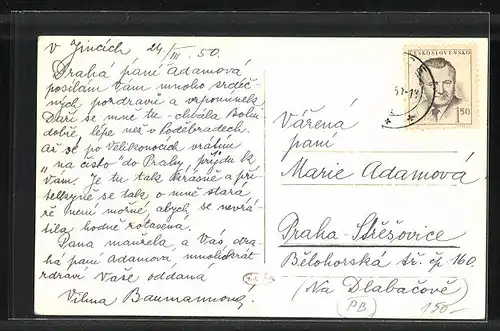 v Jincích 24/III. 50.
Drahá paní Adamová
posílám Vám mnoho srdeč-
ných pozdravů a vzpomínek.
Daří se mne tu - chvála Bohu
dobře, lépe než v Poděbradech.
Až se po Velikonocích vrátím
"na čisto" do Prahy, přijdu k
Vám. Je tu tak krásně a pří-
telkyně se tak o mně stará,
že není možné, abych se nevrá-
tila hodně zotavena.
Pana manžela a Vás, dra-
há paní Adamová mnohokrát
zdraví Vaše oddaná
Vilma Baumannová
ČESKOSLOVENSKO
1.50
Vážená
paní
Marie Adamová
Praha-Střešovice
Bělohorská tř. čp 160.
(Na Dlabačově)
PB
150-